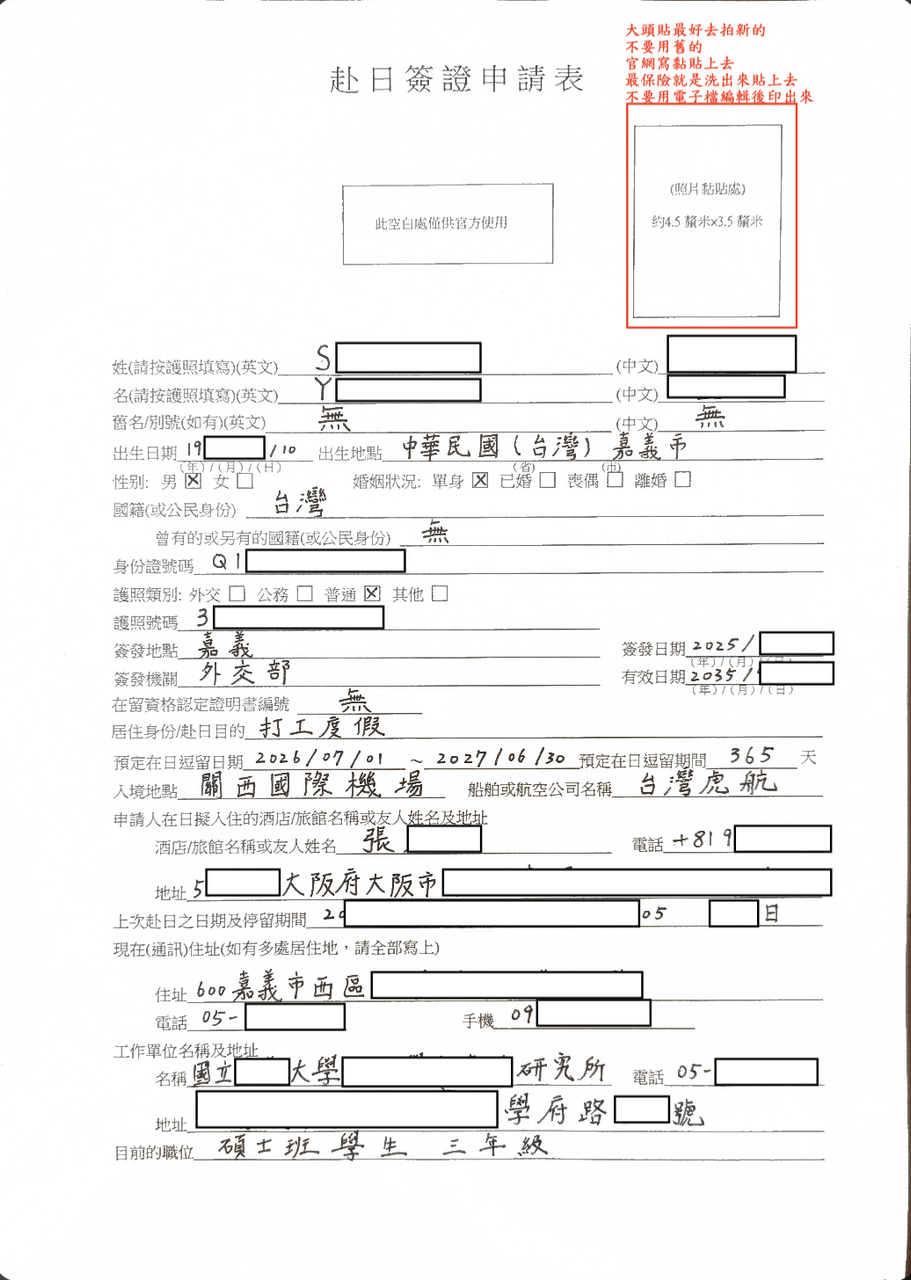 大頭貼最好去拍新的
不要用舊的
官網寫黏貼上去
最保險就是洗出來貼上去
不要用電子檔編輯後印出來
赴日簽證申請表
(照片黏貼處)
約4.5 釐米×3.5 釐米
此空白處僅供官方使用
姓(請按護照填寫)(英文) S (中文)
名(請按護照填寫)(英文) Y (中文)
舊名/別號(如有)(英文) 無 (中文) 無
出生日期 19 /10 出生地點 中華民國(台灣) 嘉義市
(年)/(月)/(日) (省) (市)
性別: 男 ☒ 女 □ 婚姻狀況: 單身 ☒ 已婚 □ 喪偶 □ 離婚 □
國籍(或公民身份) 台灣
曾有的或另有的國籍(或公民身份) 無
身份證號碼 Q1
護照類別: 外交 □ 公務 □ 普通 ☒ 其他 □
護照號碼 3
簽發地點 嘉義 簽發日期 2025/
(年)/(月)/(日)
簽發機關 外交部 有效日期 2035/
(年)/(月)/(日)
在留資格認定證明書編號 無
居住身份/赴日目的 打工度假
預定在日逗留日期 2026/07/01 ~ 2027/06/30 預定在日逗留期間 365 天
入境地點 關西國際機場 船舶或航空公司名稱 台灣虎航
申請人在日擬入住的酒店/旅館名稱或友人姓名及地址
酒店/旅館名稱或友人姓名 張 電話 +819
地址 5 大阪府大阪市
上次赴日之日期及停留期間 20 05 日
現在(通訊)住址(如有多處居住地，請全部寫上)
住址 600嘉義市西區
電話 05- 手機 09
工作單位名稱及地址
名稱 國立 大學 研究所 電話 05-
地址 學府路 號
目前的職位 碩士班學生 三年級